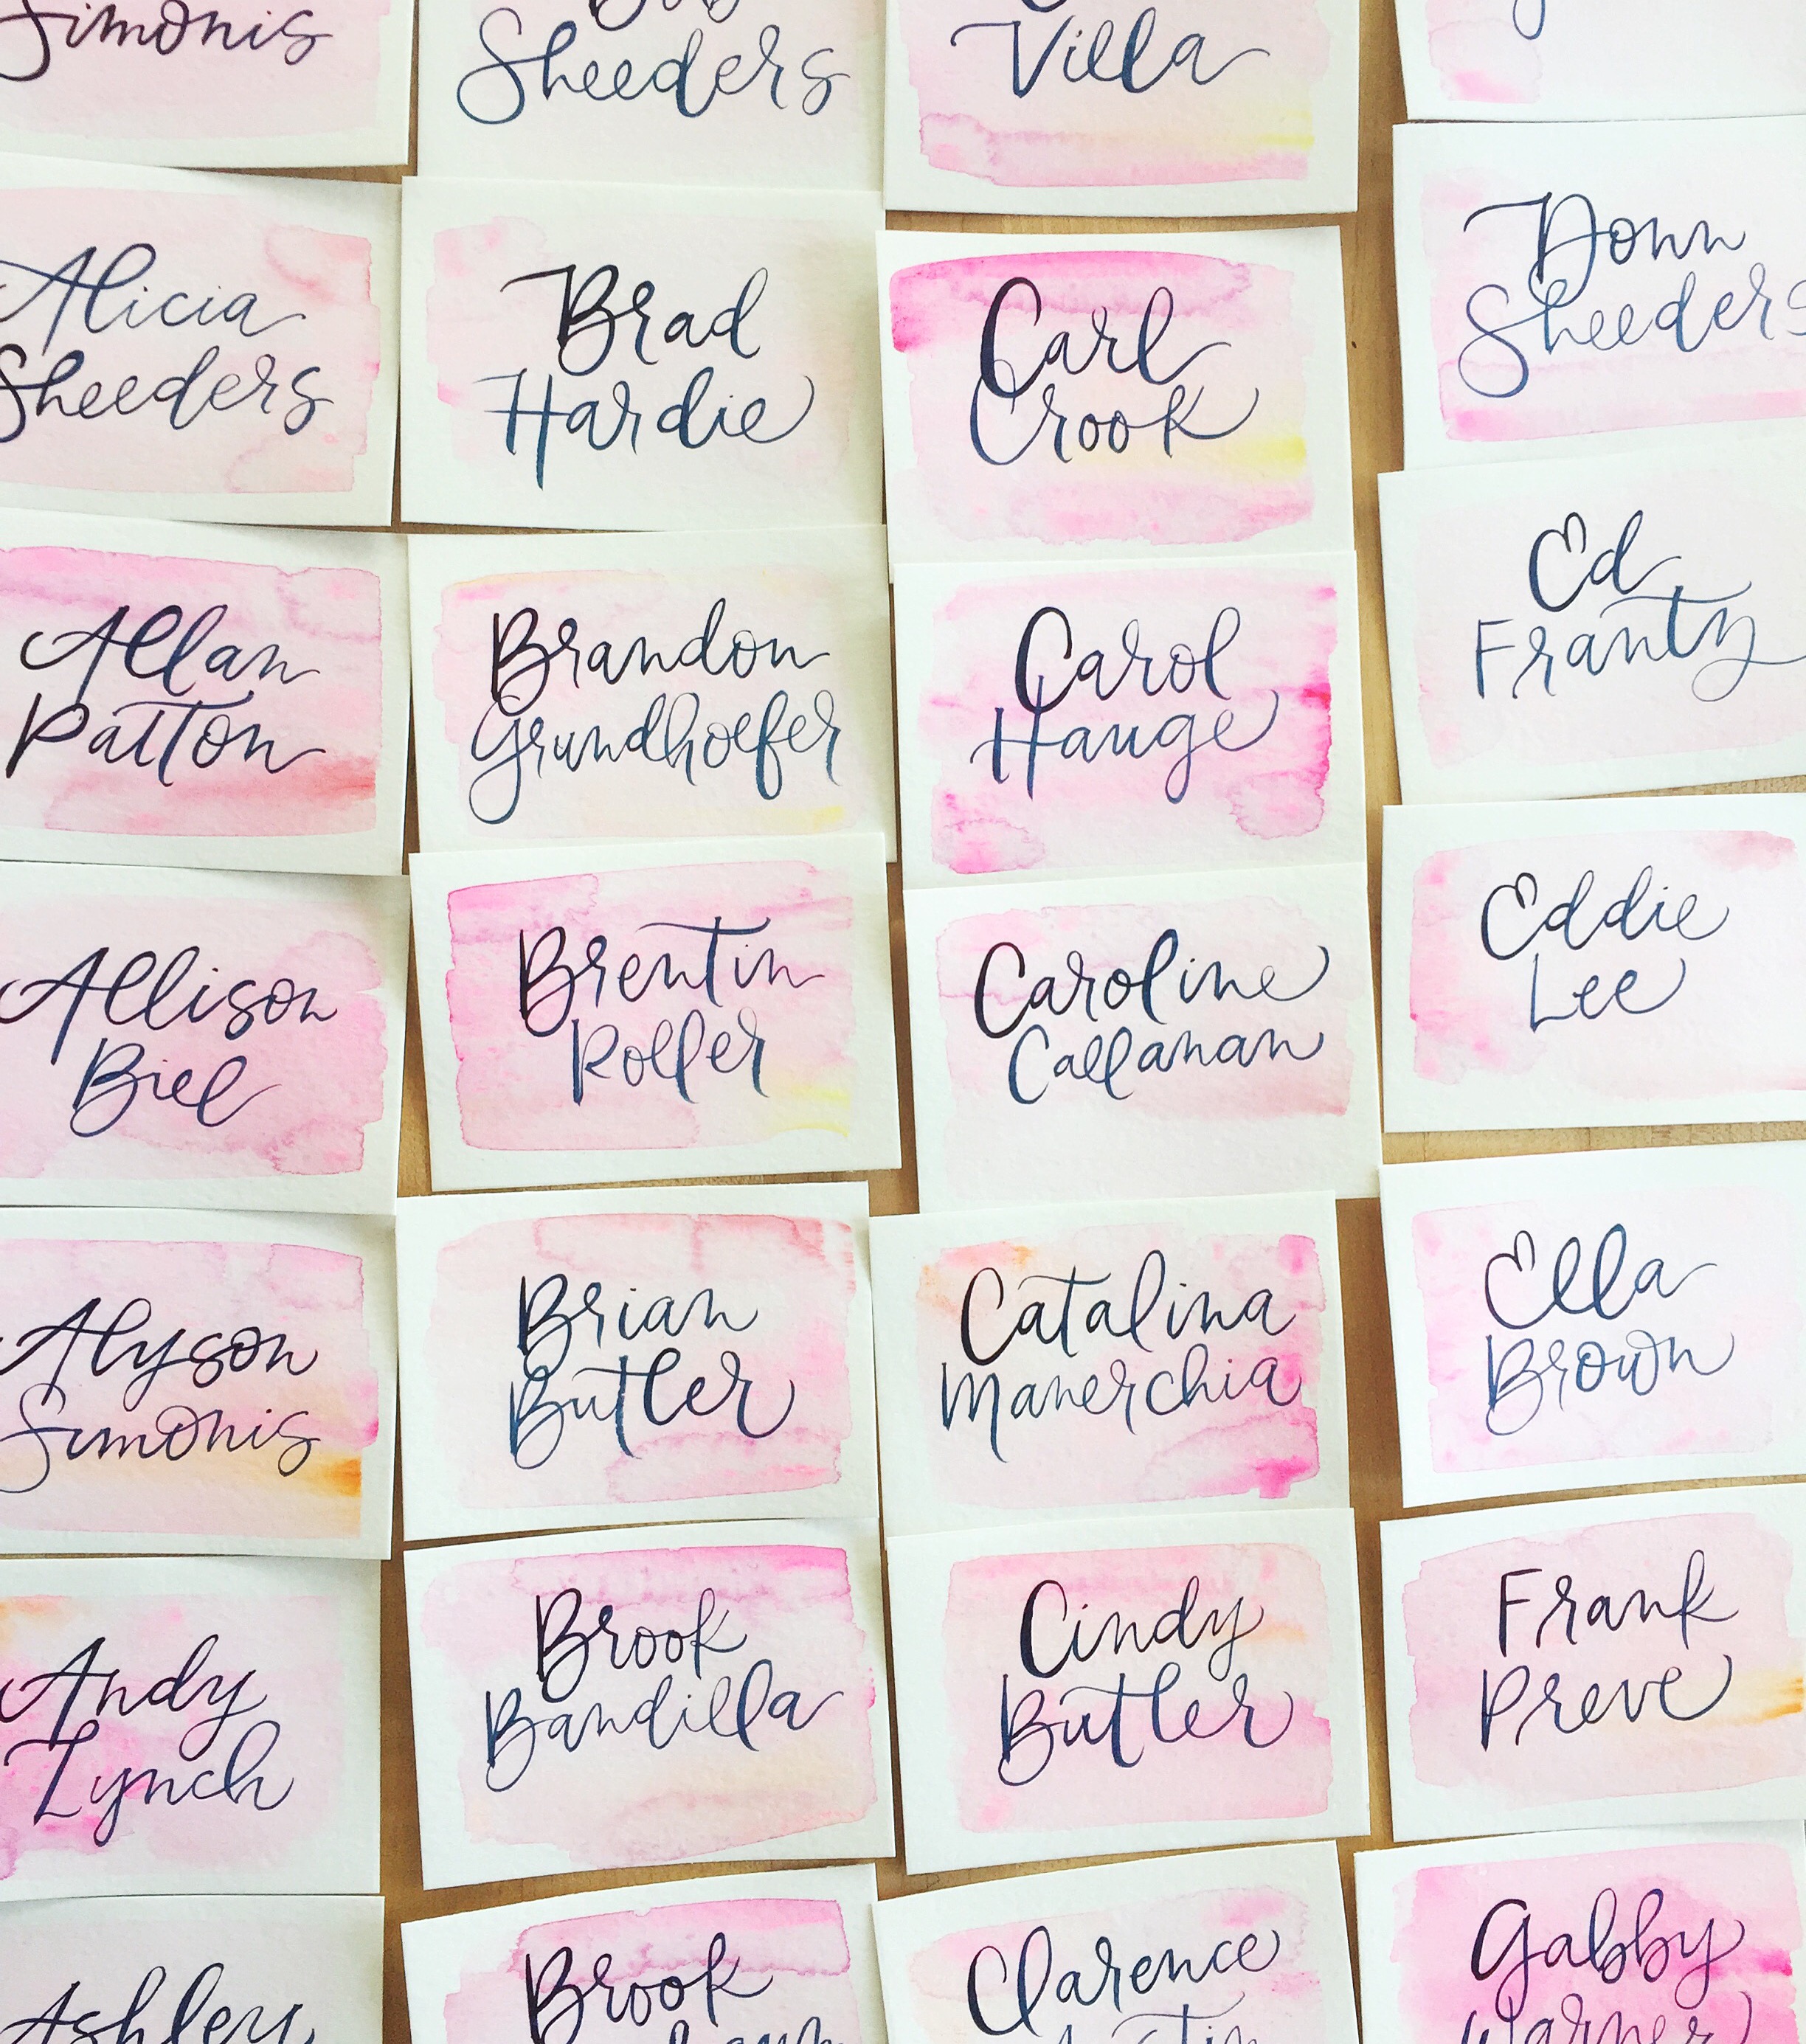 Simonis
Alicia
Sheeders
Allan
Patton
Allison
Biel
Alyson
Simonis
Andy
Lynch
Ashley
Bob
Sheeders
Brad
Hardie
Brandon
Grundhoefer
Brentin
Roller
Brian
Butler
Brook
Bandilla
Brook
Villa
Carl
Crook
Carol
Hauge
Caroline
Callanan
Catalina
Manerchia
Cindy
Butler
Clarence
Donn
Sheeders
Ed
Franty
Eddie
Lee
Ella
Brown
Frank
Preve
Gabby
Warner